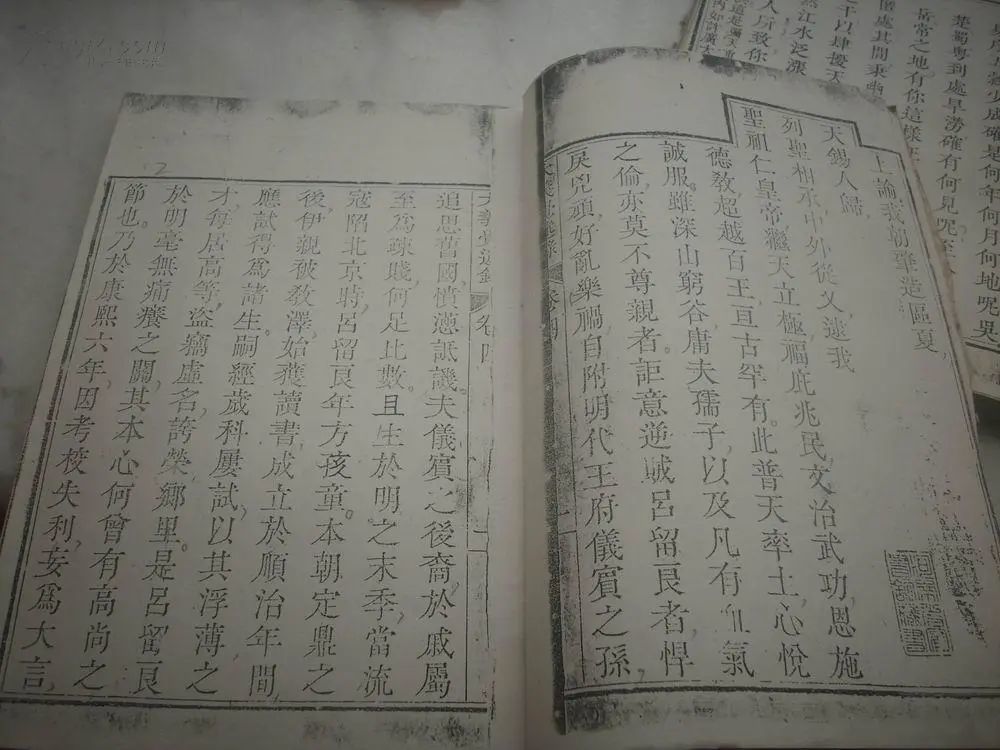 上諭我朝肇造區夏，
天錫人歸，
列聖相承中外從乂逮我
聖祖仁皇帝繼天立極，福庇兆民，文治武功，恩施
德教，超越百王，亘古罕有。此普天率土，心悅
誠服。雖深山窮谷，庸夫孺子，以及凡有血氣
之倫，亦莫不尊親者。詎意逆賊呂留良者，悍
戾兇頑，好亂樂禍，自附明代王府儀賓之孫，
大義覺迷錄 卷四 一
追思舊國，憤懣詆譏。夫儀賓之後裔，於戚屬
至為疎賤，何足比數。且生於明之末季，當流
寇陷北京時，呂留良年方孩童。本朝定鼎之
後，伊親被教澤，始獲讀書，成立於順治年間，
應試得為諸生。嗣經歲科屢試，以其浮薄之
才，每居高等，盜竊虛名，誇榮鄉里。是呂留良
於明毫無痛癢之關，其本心何曾有高尚之
節也。乃於康熙六年，因考校失利，妄為大言，
2
楚蜀粵到處旱澇確有何見呢
岳常之地有你這樣